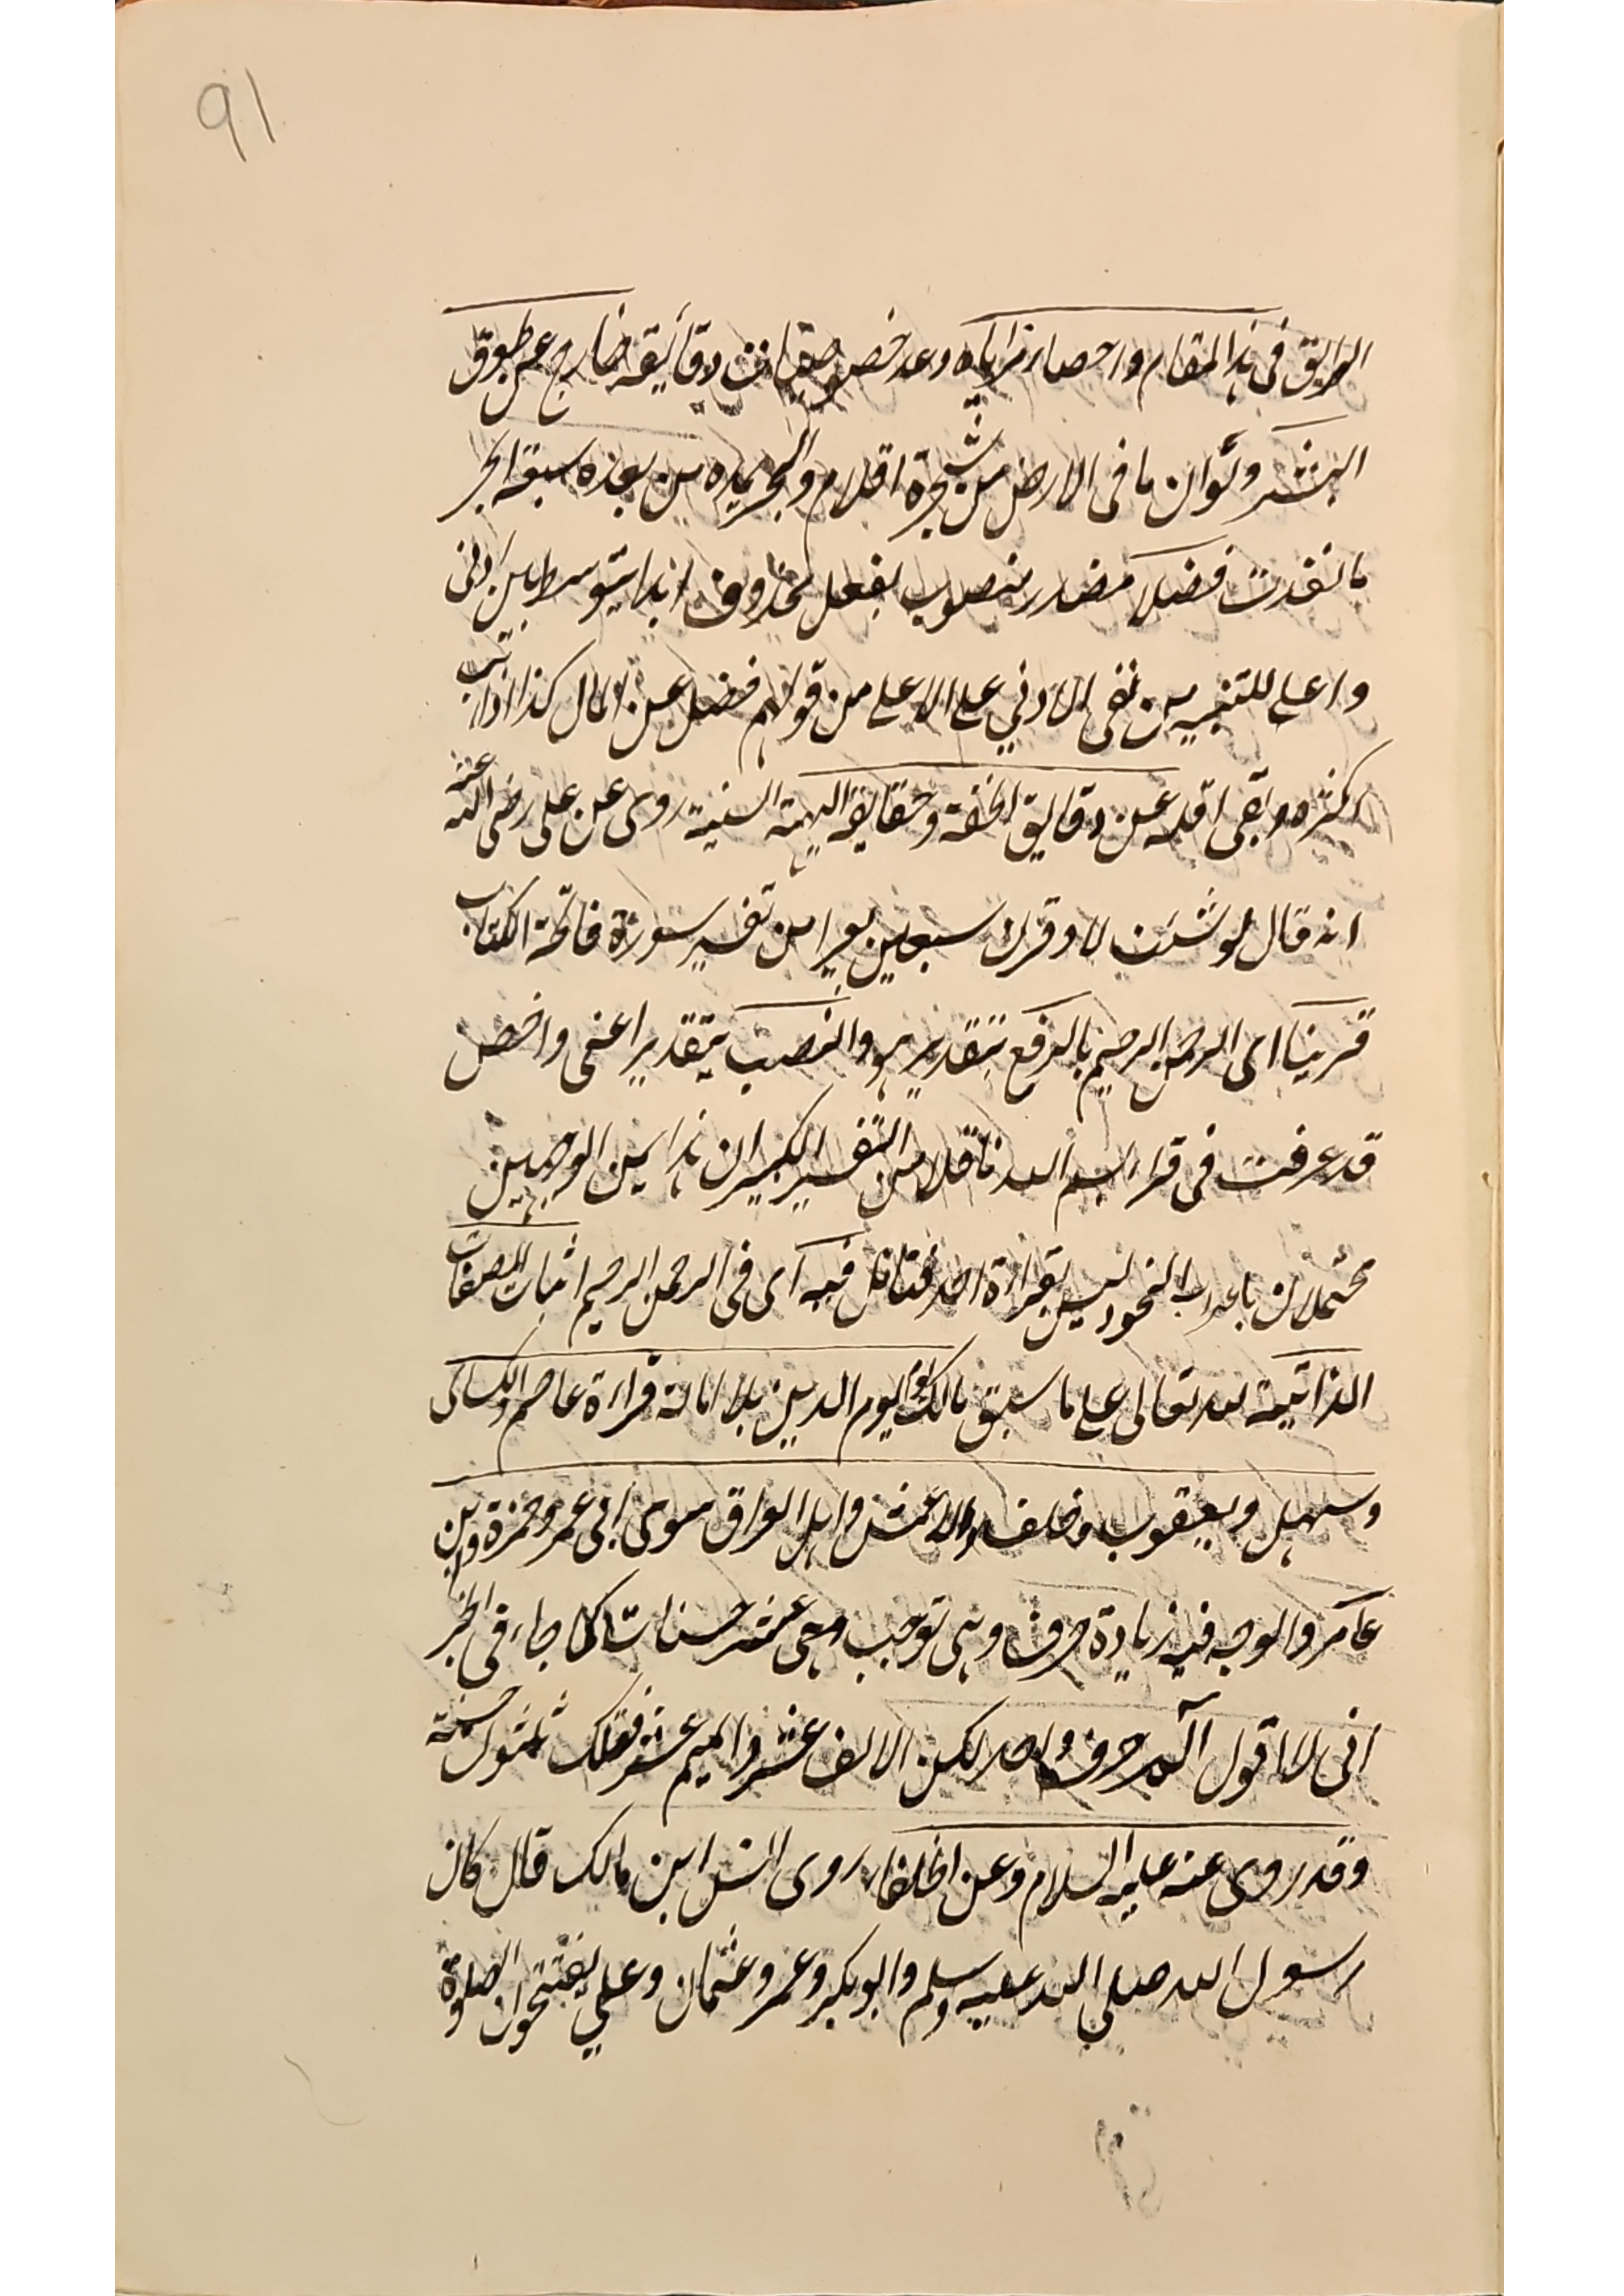 91
الرايق فى هذا المقام واحصاء مزاياه وعد خصوصيات دقايقه خارج عن طوق
البشر ولو ان ما فى الارض من شجرة اقلام والبحر يمده من بعده سبعة ابحر
ما نفدت فضلا مصدر منصوب بفعل محذوف ابدا يتوسط بين ادنى
واعلى للتنبيه من نفى الادنى على الاعلى من قولهم فضل عن المال كذا اذا ذهب
اكثره وبقى اقله عن دقايق الخفية وحقايقه البهية السنية روى عن على رضى الله عنه
انه قال لو شئت لاوقرت سبعين بعيرا من تفسير سورة فاتحة الكتاب
قرينا اى الرحمن الرحيم بالرفع بتقدير هو والنصب بتقدير اعنى واخص
قد عرفت فى قراءة بسم الله ناقلا من التفسير الكبير ان هذا من الوجهين
محتملان باعراب النحو وليس بقراءة احد فتامل فيه اى فى الرحمن الرحيم اثبات الصفات
الذاتية لله تعالى على ما سبق مالك يوم الدين بلا امالة قراءة عاصم والكسائى
وسهل ويعقوب وخلف والاعمش واهل العراق سوى ابى عمرو وحمزة وابن
عامر والوجه فيه زيادة حرف وهى توجب وهى عشر حسنات كما جاء فى الخبر
انى لا اقول الم حرف واحد لكن الالف عشر والميم عشر فتلك ثلثون حسنة
وقد روى عنه عليه السلام وعن الخلفاء روى انس ابن مالك قال كان
رسول الله صلى الله عليه وسلم وابو بكر وعمر وعثمان وعلى يفتتحون الصلوة